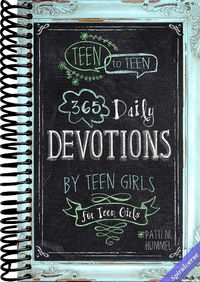 TEEN to TEEN
365 Daily
DEVOTIONS
BY TEEN GIRLS
for Teen Girls
PATTI M.
HUMMEL
Spiralverse